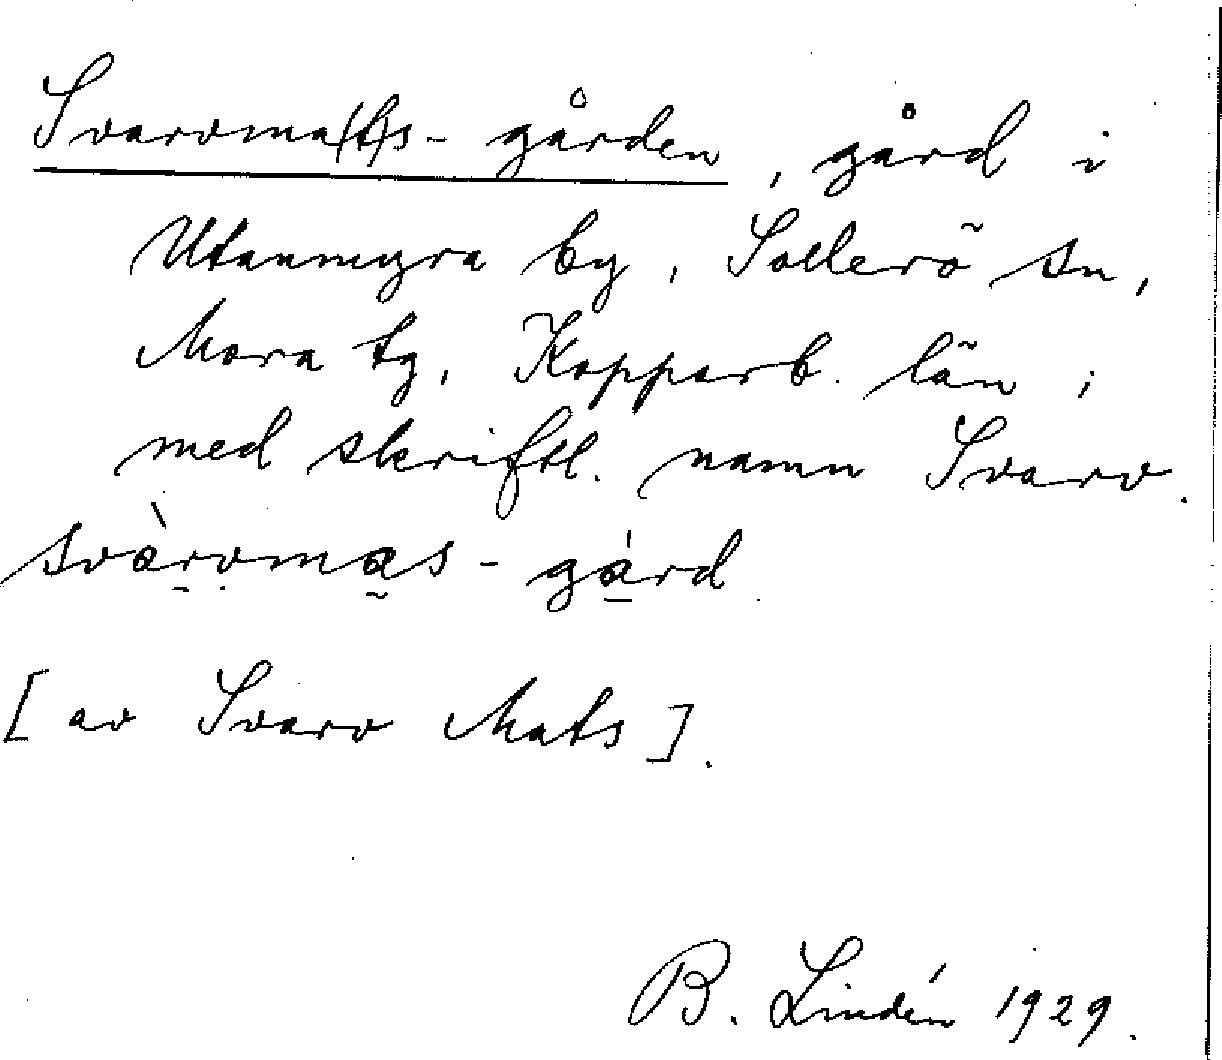 Svarvma(t)s-gården, gård i
Utanmyra by, Sollerö sn,
Mora tg, Kopparb. län;
med skriftl. namn Svarv.
svàrvmas-gárd
[av Svarv Mats].
B. Lindén 1929.